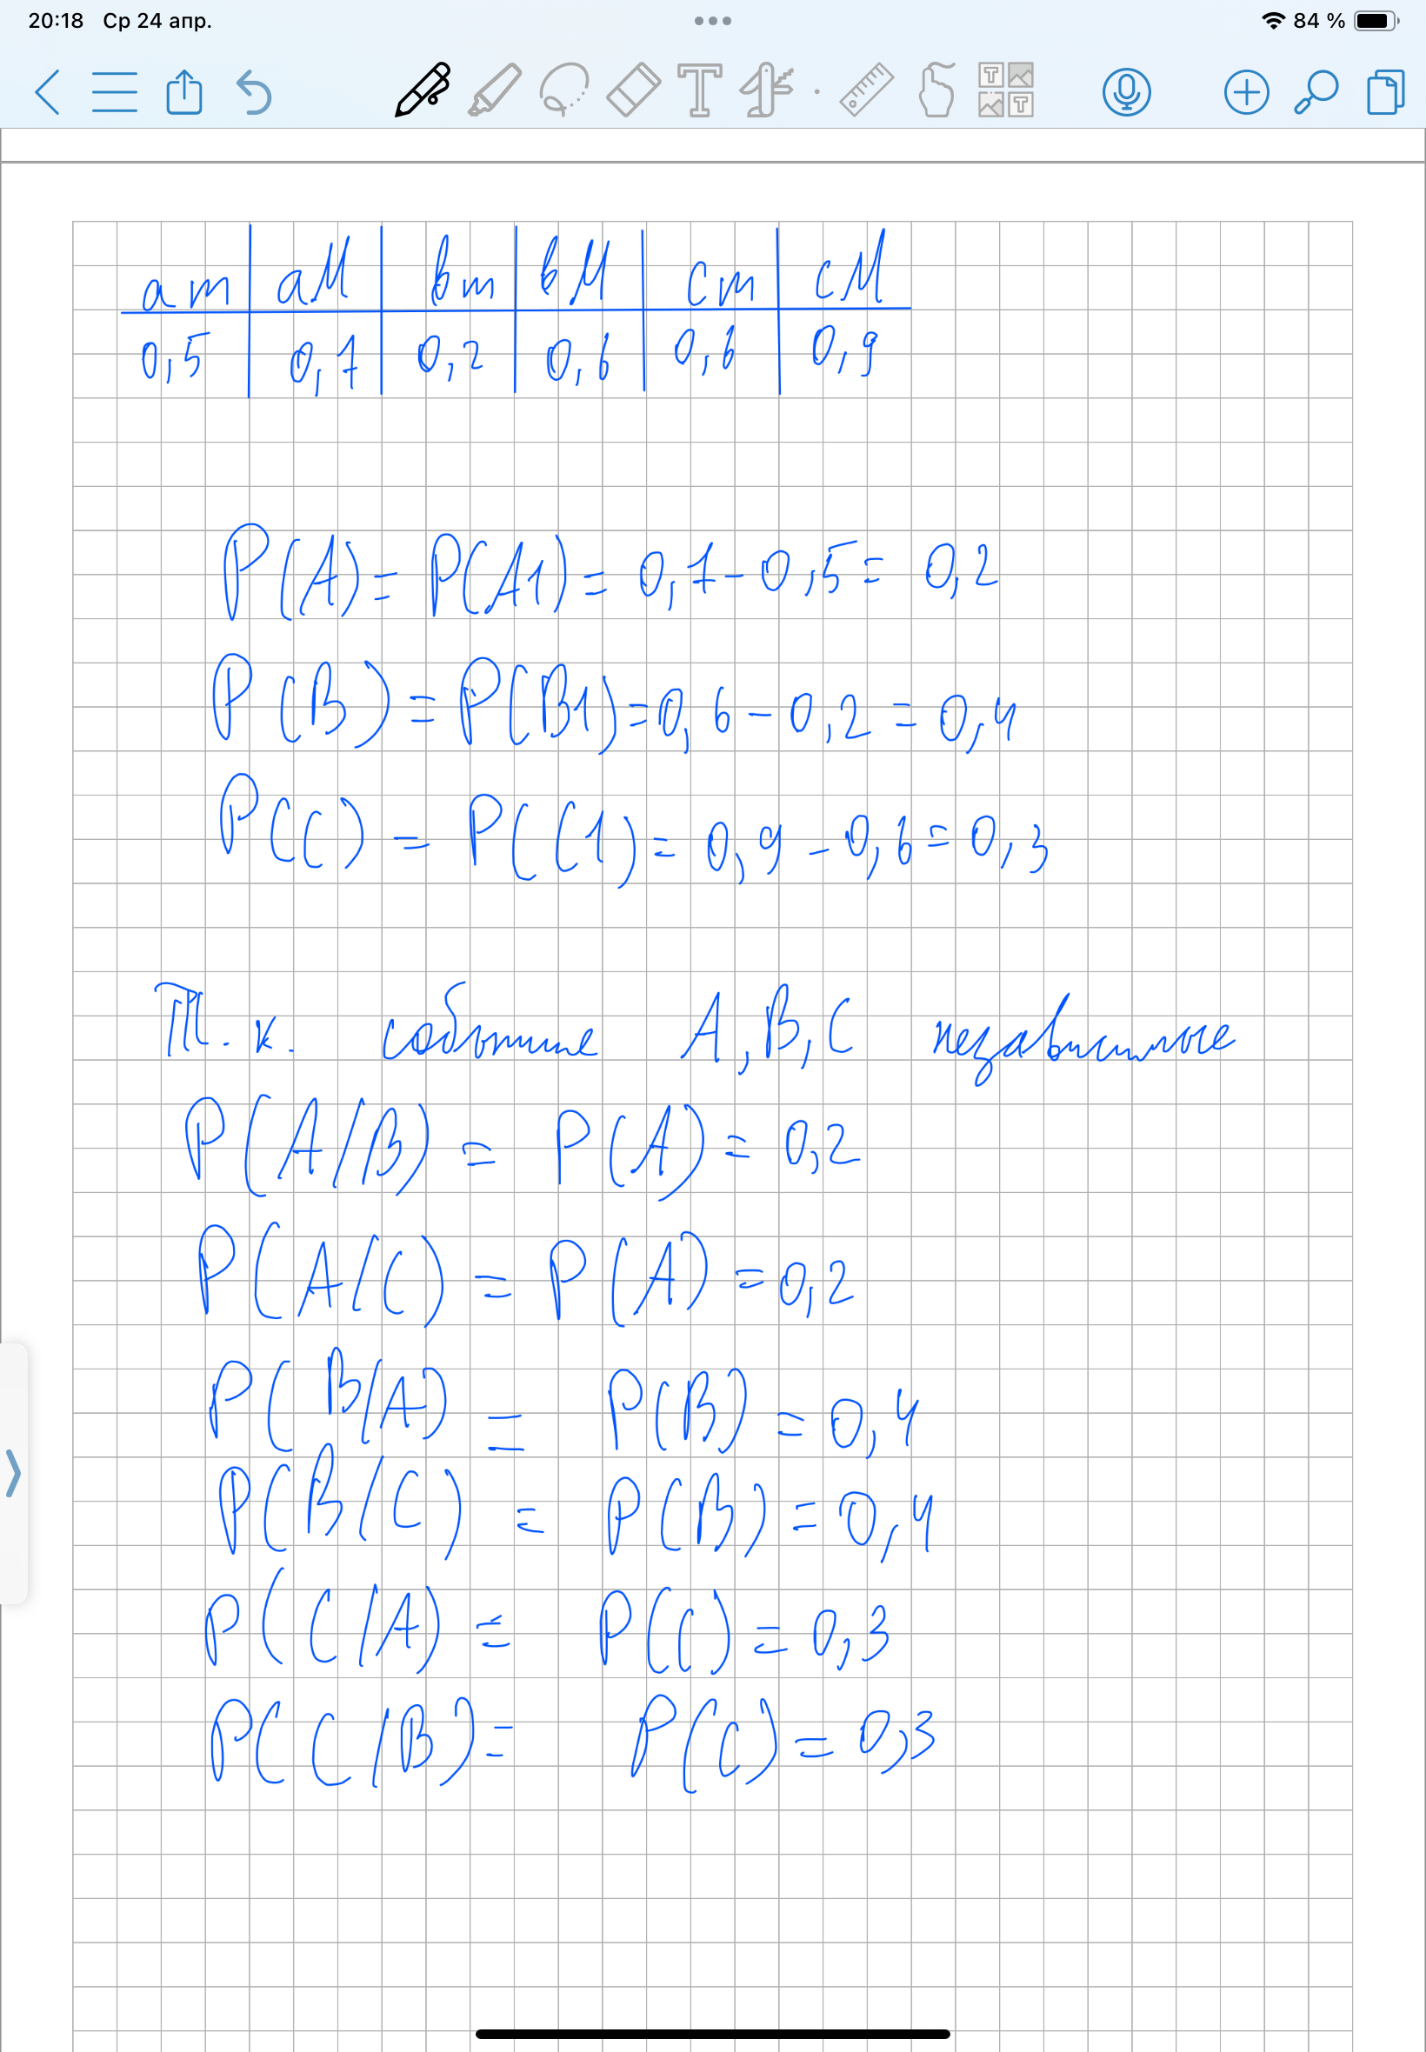 20:18 Ср 24 апр. 84 %
am aM bm bM cm cM
0,5 0,7 0,2 0,6 0,6 0,9
P(A) = P(A1) = 0,7 - 0,5 = 0,2
P(B) = P(B1) = 0,6 - 0,2 = 0,4
P(C) = P(C1) = 0,9 - 0,6 = 0,3
Т.к. событие A, B, C независимые
P(A/B) = P(A) = 0,2
P(A/C) = P(A) = 0,2
P(B/A) = P(B) = 0,4
P(B/C) = P(B) = 0,4
P(C/A) = P(C) = 0,3
P(C/B) = P(C) = 0,3